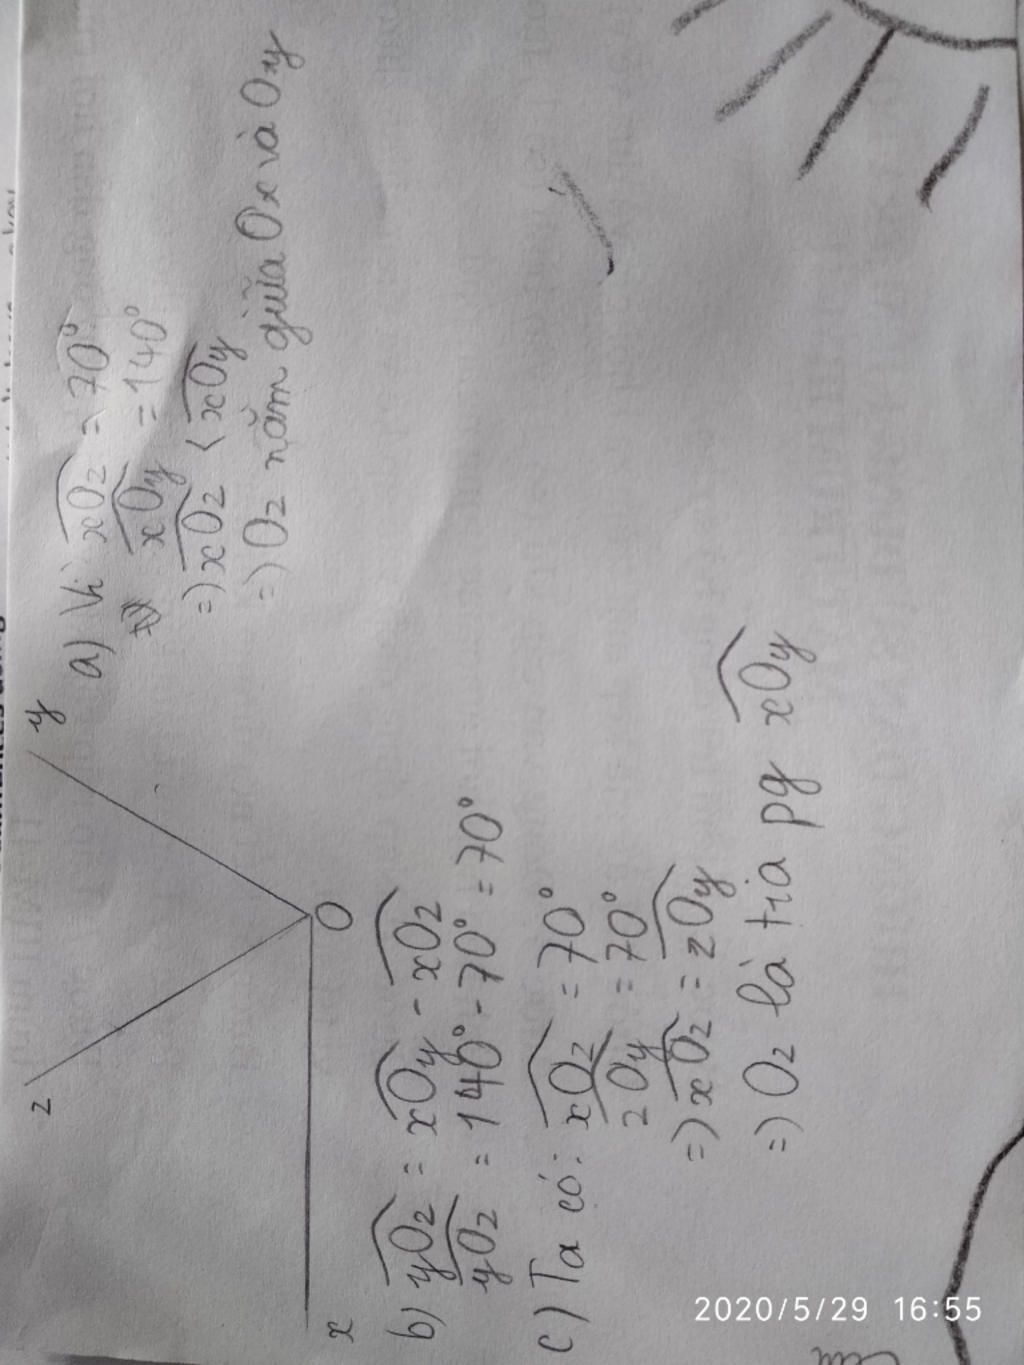 z
y
O
x
a) Vì xOz = 70°
xOy = 140°
=) xOz < xOy
=) Oz nằm giữa Ox và Oy
b) yOz = xOy - xOz
yOz = 140° - 70° = 70°
c) Ta có: xOz = 70°
zOy = 70°
=) xOz = zOy
=) Oz là tia pg xOy
2020/5/29 16:55